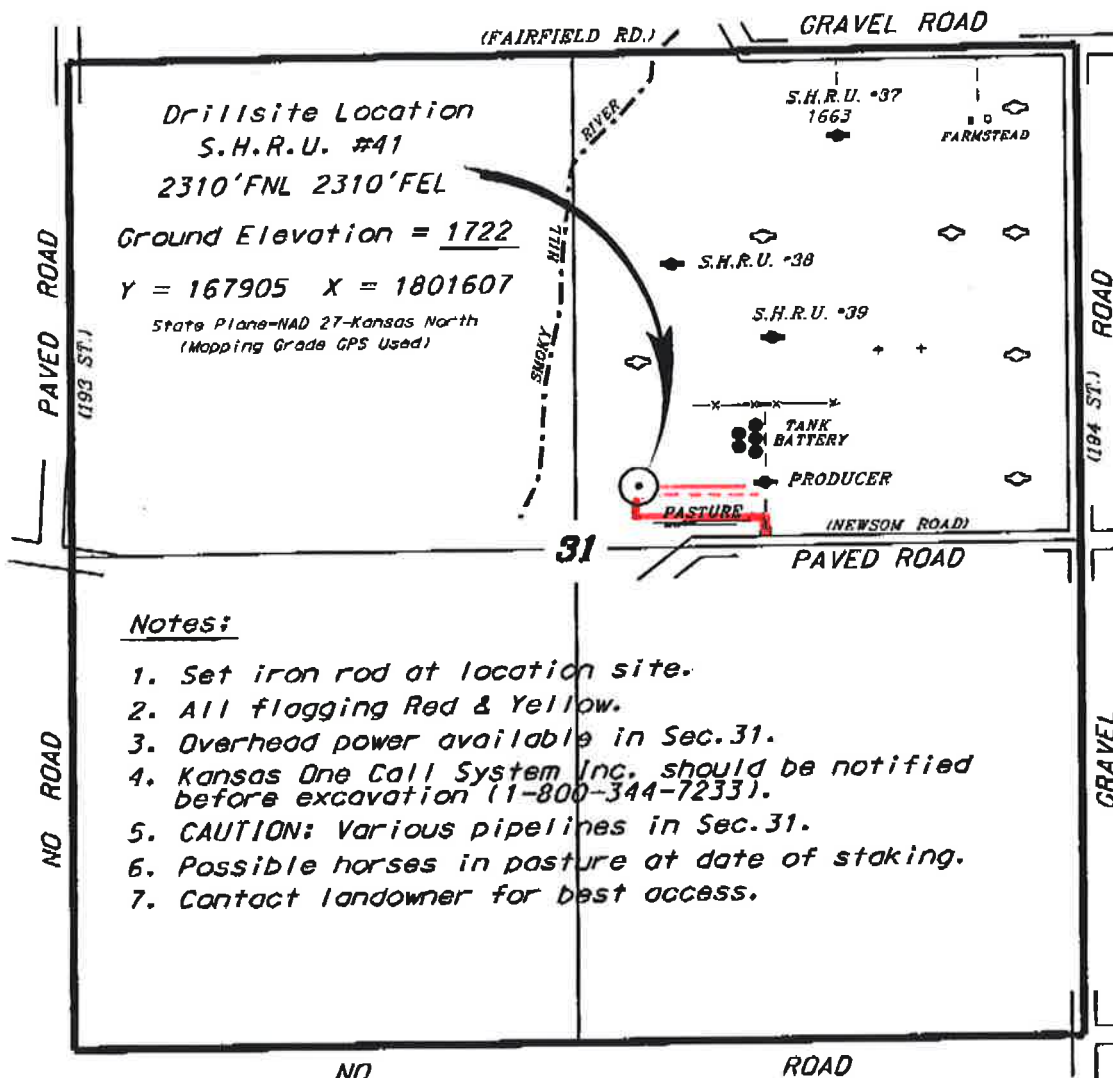 (FAIRFIELD RD.)
GRAVEL ROAD
Drillsite Location
S.H.R.U. #41
2310'FNL 2310'FEL
Ground Elevation = 1722
Y = 167905 X = 1801607
State Plane-NAD 27-Kansas North
(Mapping Grade GPS Used)
PAVED ROAD
(193 ST.)
RIVER
HILL
SMOKY
S.H.R.U. #37
1663
FARMSTEAD
S.H.R.U. #38
S.H.R.U. #39
TANK
BATTERY
PRODUCER
PASTURE
(NEWSOM ROAD)
31
PAVED ROAD
ROAD
(194 ST.)
GRAVEL
Notes:
1. Set iron rod at location site.
2. All flagging Red & Yellow.
3. Overhead power available in Sec.31.
4. Kansas One Call System Inc. should be notified
before excavation (1-800-344-7233).
5. CAUTION: Various pipelines in Sec.31.
6. Possible horses in pasture at date of staking.
7. Contact landowner for best access.
NO ROAD
NO ROAD